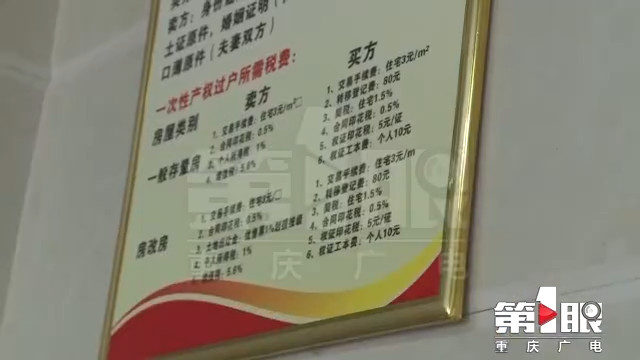 卖方：身份证
土证原件，婚姻证明（
口薄原件（夫妻双方）
一次性产权过户所需税费：
房屋类别 卖方 买方
一般存量房
1、交易手续费：住宅3元/m
2、合同印花税：0.5%
3、个人所得税 1%
4、增值税：5.6%
1、交易手续费：住宅3元/m²
2、转移登记费：80元
3、契税：住宅1.5%
4、合同印花税：0.5%
5、权证印花税：5元/证
6、权证工本费：个人10元
房改房
1、交易手续费：住宅3元/
2、合同印花税：0.5%
3、土地出让金：
4、个人所得税：1%
5.6%
1、交易手续费：住宅3元/m
2、转移登记费：80元
3、契税：住宅1.5%
4、合同印花税：0.5%
5、权证印花税：5元/证
6、权证工本费：个人10元
第1眼
重庆广电
第1眼
重庆广电